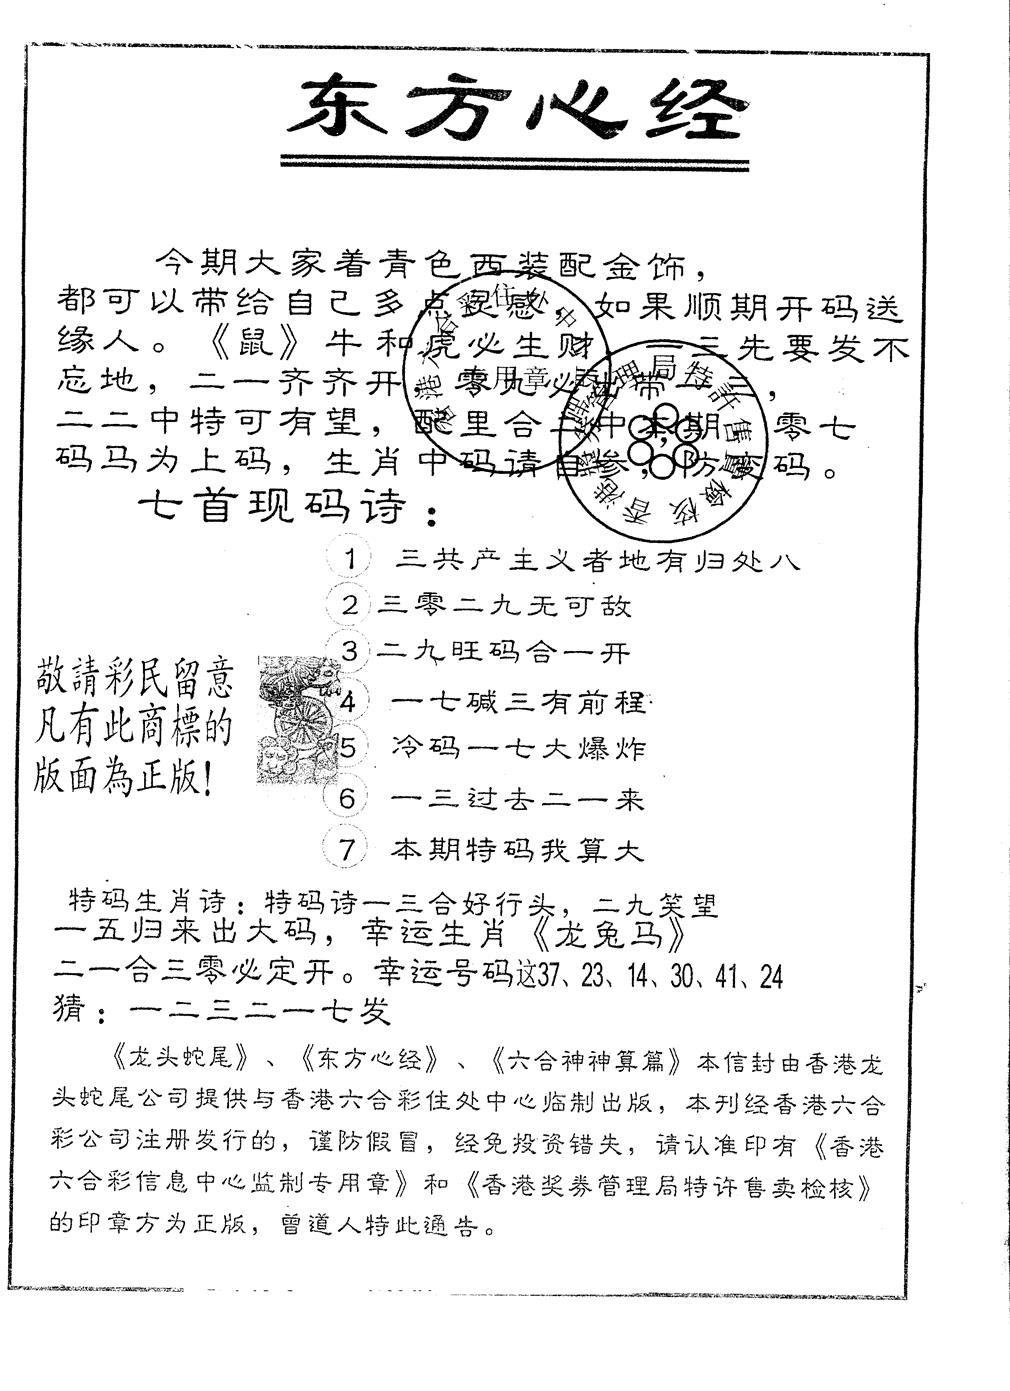 东方心经
今期大家着青色西装配金饰，
都可以带给自己多点灵感，如果顺期开码送
缘人。《鼠》牛和虎必生财，一三先要发不
忘地，二一齐齐开，零九必出带一三，
二二中特可有望，配里合二中本期，零七
码马为上码，生肖中码请自参，防变码。
七首现码诗：
1 三共产主义者地有归处八
2 三零二九无可敌
3 二九旺码合一开
4 一七碱三有前程
5 冷码一七大爆炸
6 一三过去二一来
7 本期特码我算大
敬請彩民留意
凡有此商標的
版面為正版！
特码生肖诗：特码诗一三合好行头，二九笑望
一五归来出大码，幸运生肖《龙兔马》
二一合三零必定开。幸运号码这37、23、14、30、41、24
猜：一二三二一七发
《龙头蛇尾》、《东方心经》、《六合神神算篇》本信封由香港龙
头蛇尾公司提供与香港六合彩住处中心临制出版，本刊经香港六合
彩公司注册发行的，谨防假冒，经免投资错失，请认准印有《香港
六合彩信息中心监制专用章》和《香港奖券管理局特许售卖检核》
的印章方为正版，曾道人特此通告。